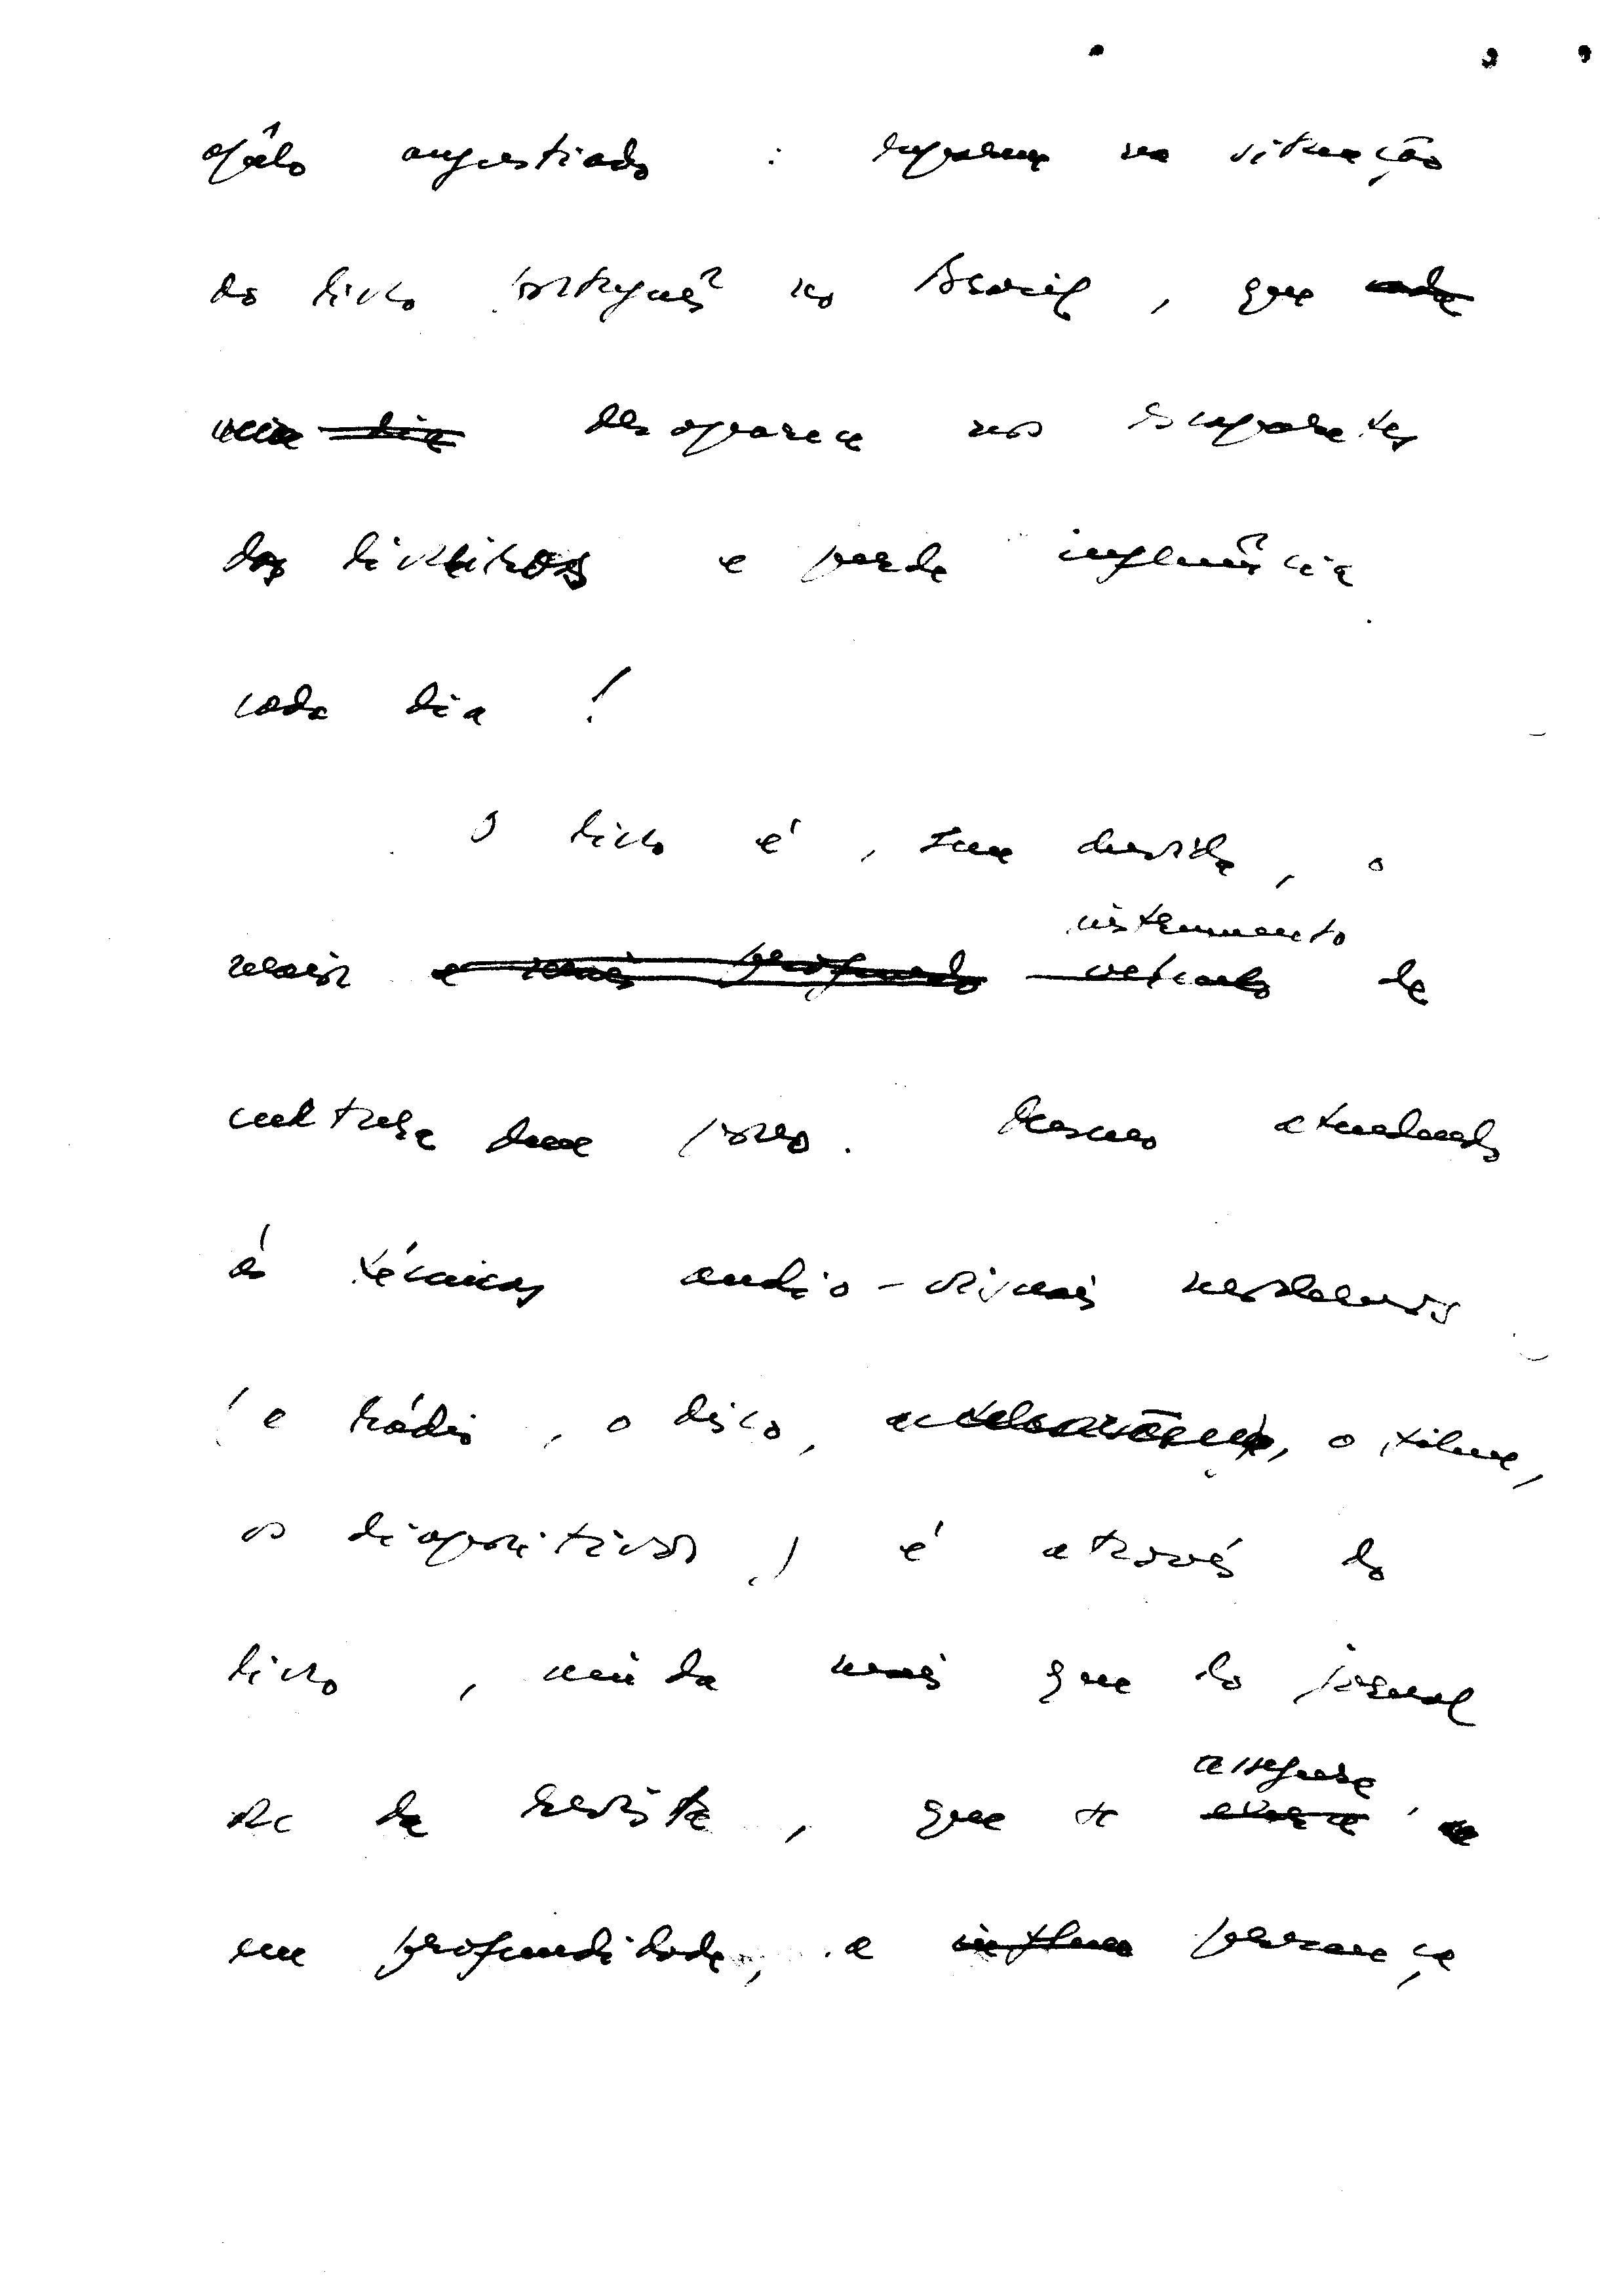 apêlo angustiado : reparem na situação
do livro português no Brasil, que cada
dia desaparece nos escaparates
dos livreiros e perde influência
cada dia !
O livro é, sem dúvida, o
instrumento
maior e mais profundo veículo de
cultura dum povo. Mesmo atendendo
às técnicas audio-visuais modernas
( a rádio, o disco, a televisão, o filme,
os diapositivos ) é através do
livro, ainda mais que do jornal
ou da revista, que se
assegura
exerce a
em profundidade, a influen presença